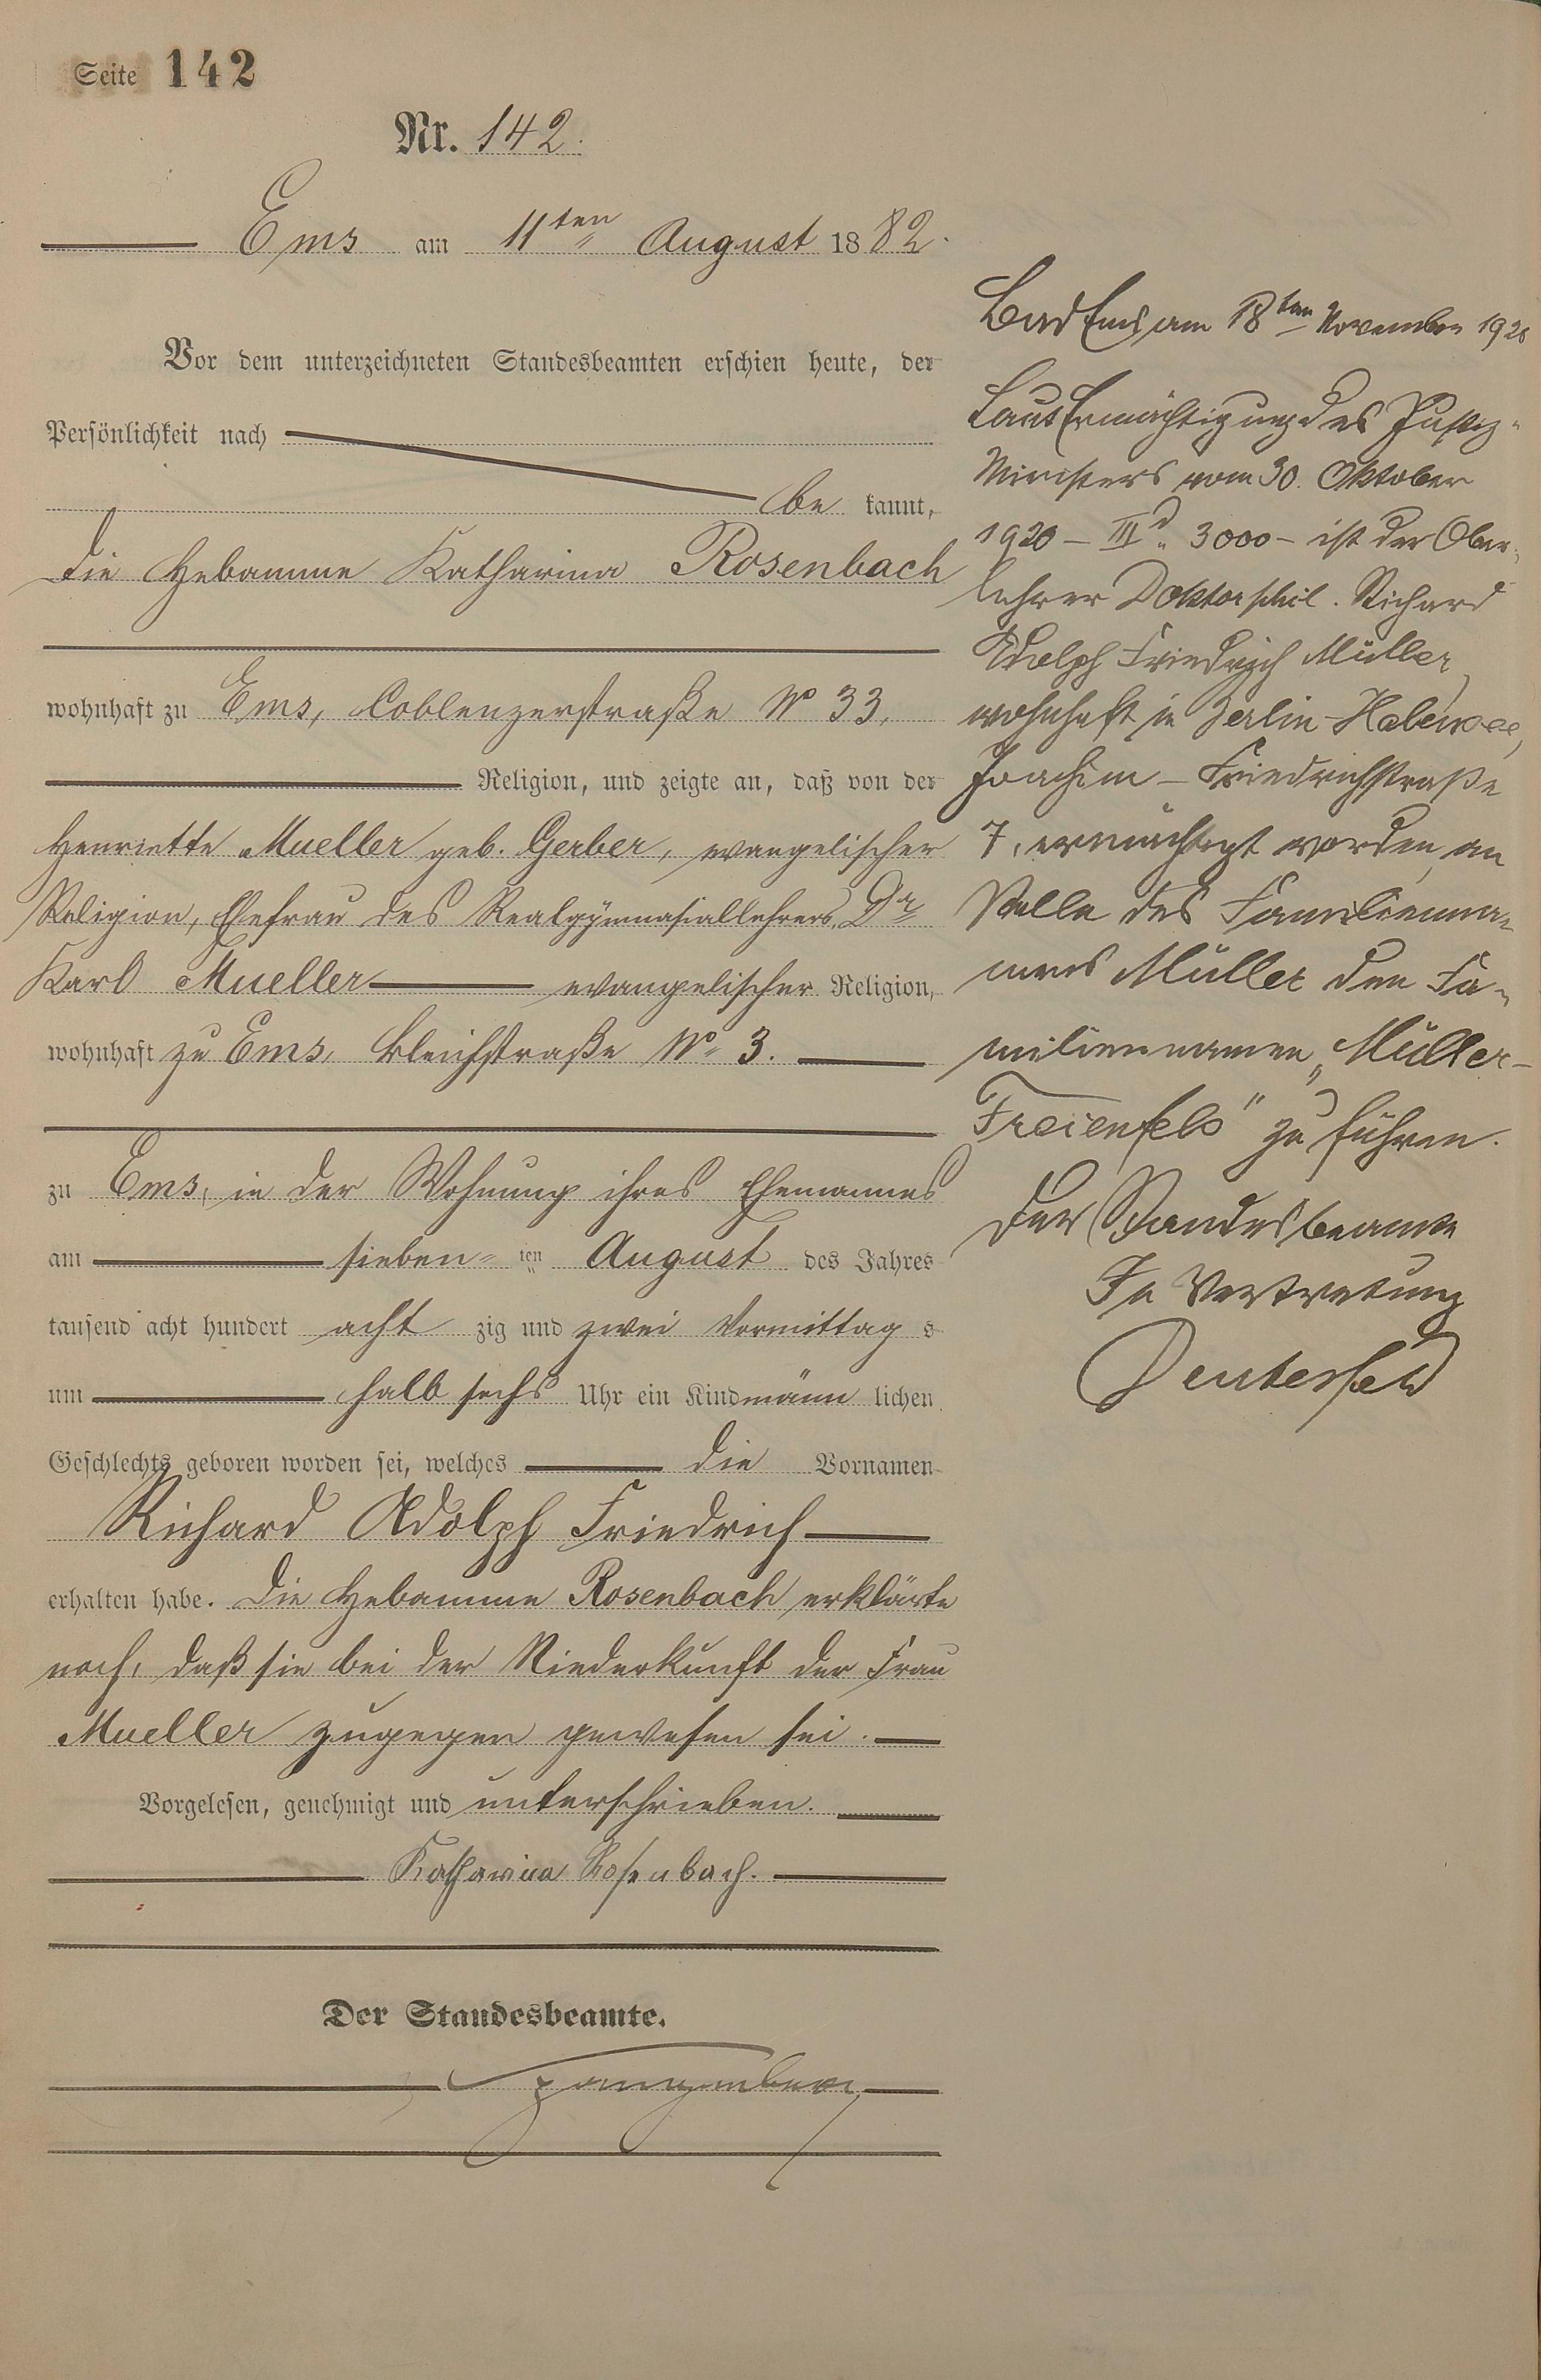 Seite 142
Nr. 142.
Ems am 11ten August 1882.
Vor dem unterzeichneten Standesbeamten erschien heute, der
Persönlichkeit nach
be kannt,
die Hebamme Katharina Rosenbach
wohnhaft zu Ems, Coblenzerstraße No 33,
Religion, und zeigte an, daß von der
Henriette Mueller geb. Gerber, evangelischer
Religion, Ehefrau des Realgymnasiallehrers Dr
Karl Mueller evangelischer Religion,
wohnhaft zu Ems, Bleichstraße No 3.
zu Ems, in der Wohnung ihres Ehemannes
am sieben ten August des Jahres
tausend acht hundert acht zig und zwei Vormittag s
um halb sechs Uhr ein Kind männ lichen
Geschlechts geboren worden sei, welches die Vornamen
Richard Adolph Friedrich
erhalten habe. Die Hebamme Rosenbach erklärte
noch, daß sie bei der Niederkunft der Frau
Mueller zugegen gewesen sei.
Vorgelesen, genehmigt und unterschrieben.
Katharina Rosenbach.
Der Standesbeamte.
Bad Ems am 18ten November 1920
Laut Ermächtigung des Justiz-
Ministers vom 30. Oktober
1920 – IIId. 3000 – ist der Ober-
lehrer Doktor phil. Richard
Adolph Friedrich Müller,
wohnhaft in Berlin-Halensee,
Joachim-Friedrichstraße
7, ermächtigt worden, an
Stelle des Familienna-
mens Müller den Fa-
miliennamen „Müller-
Freienfels" zu führen.
Der Standesbeamte
In Vertretung